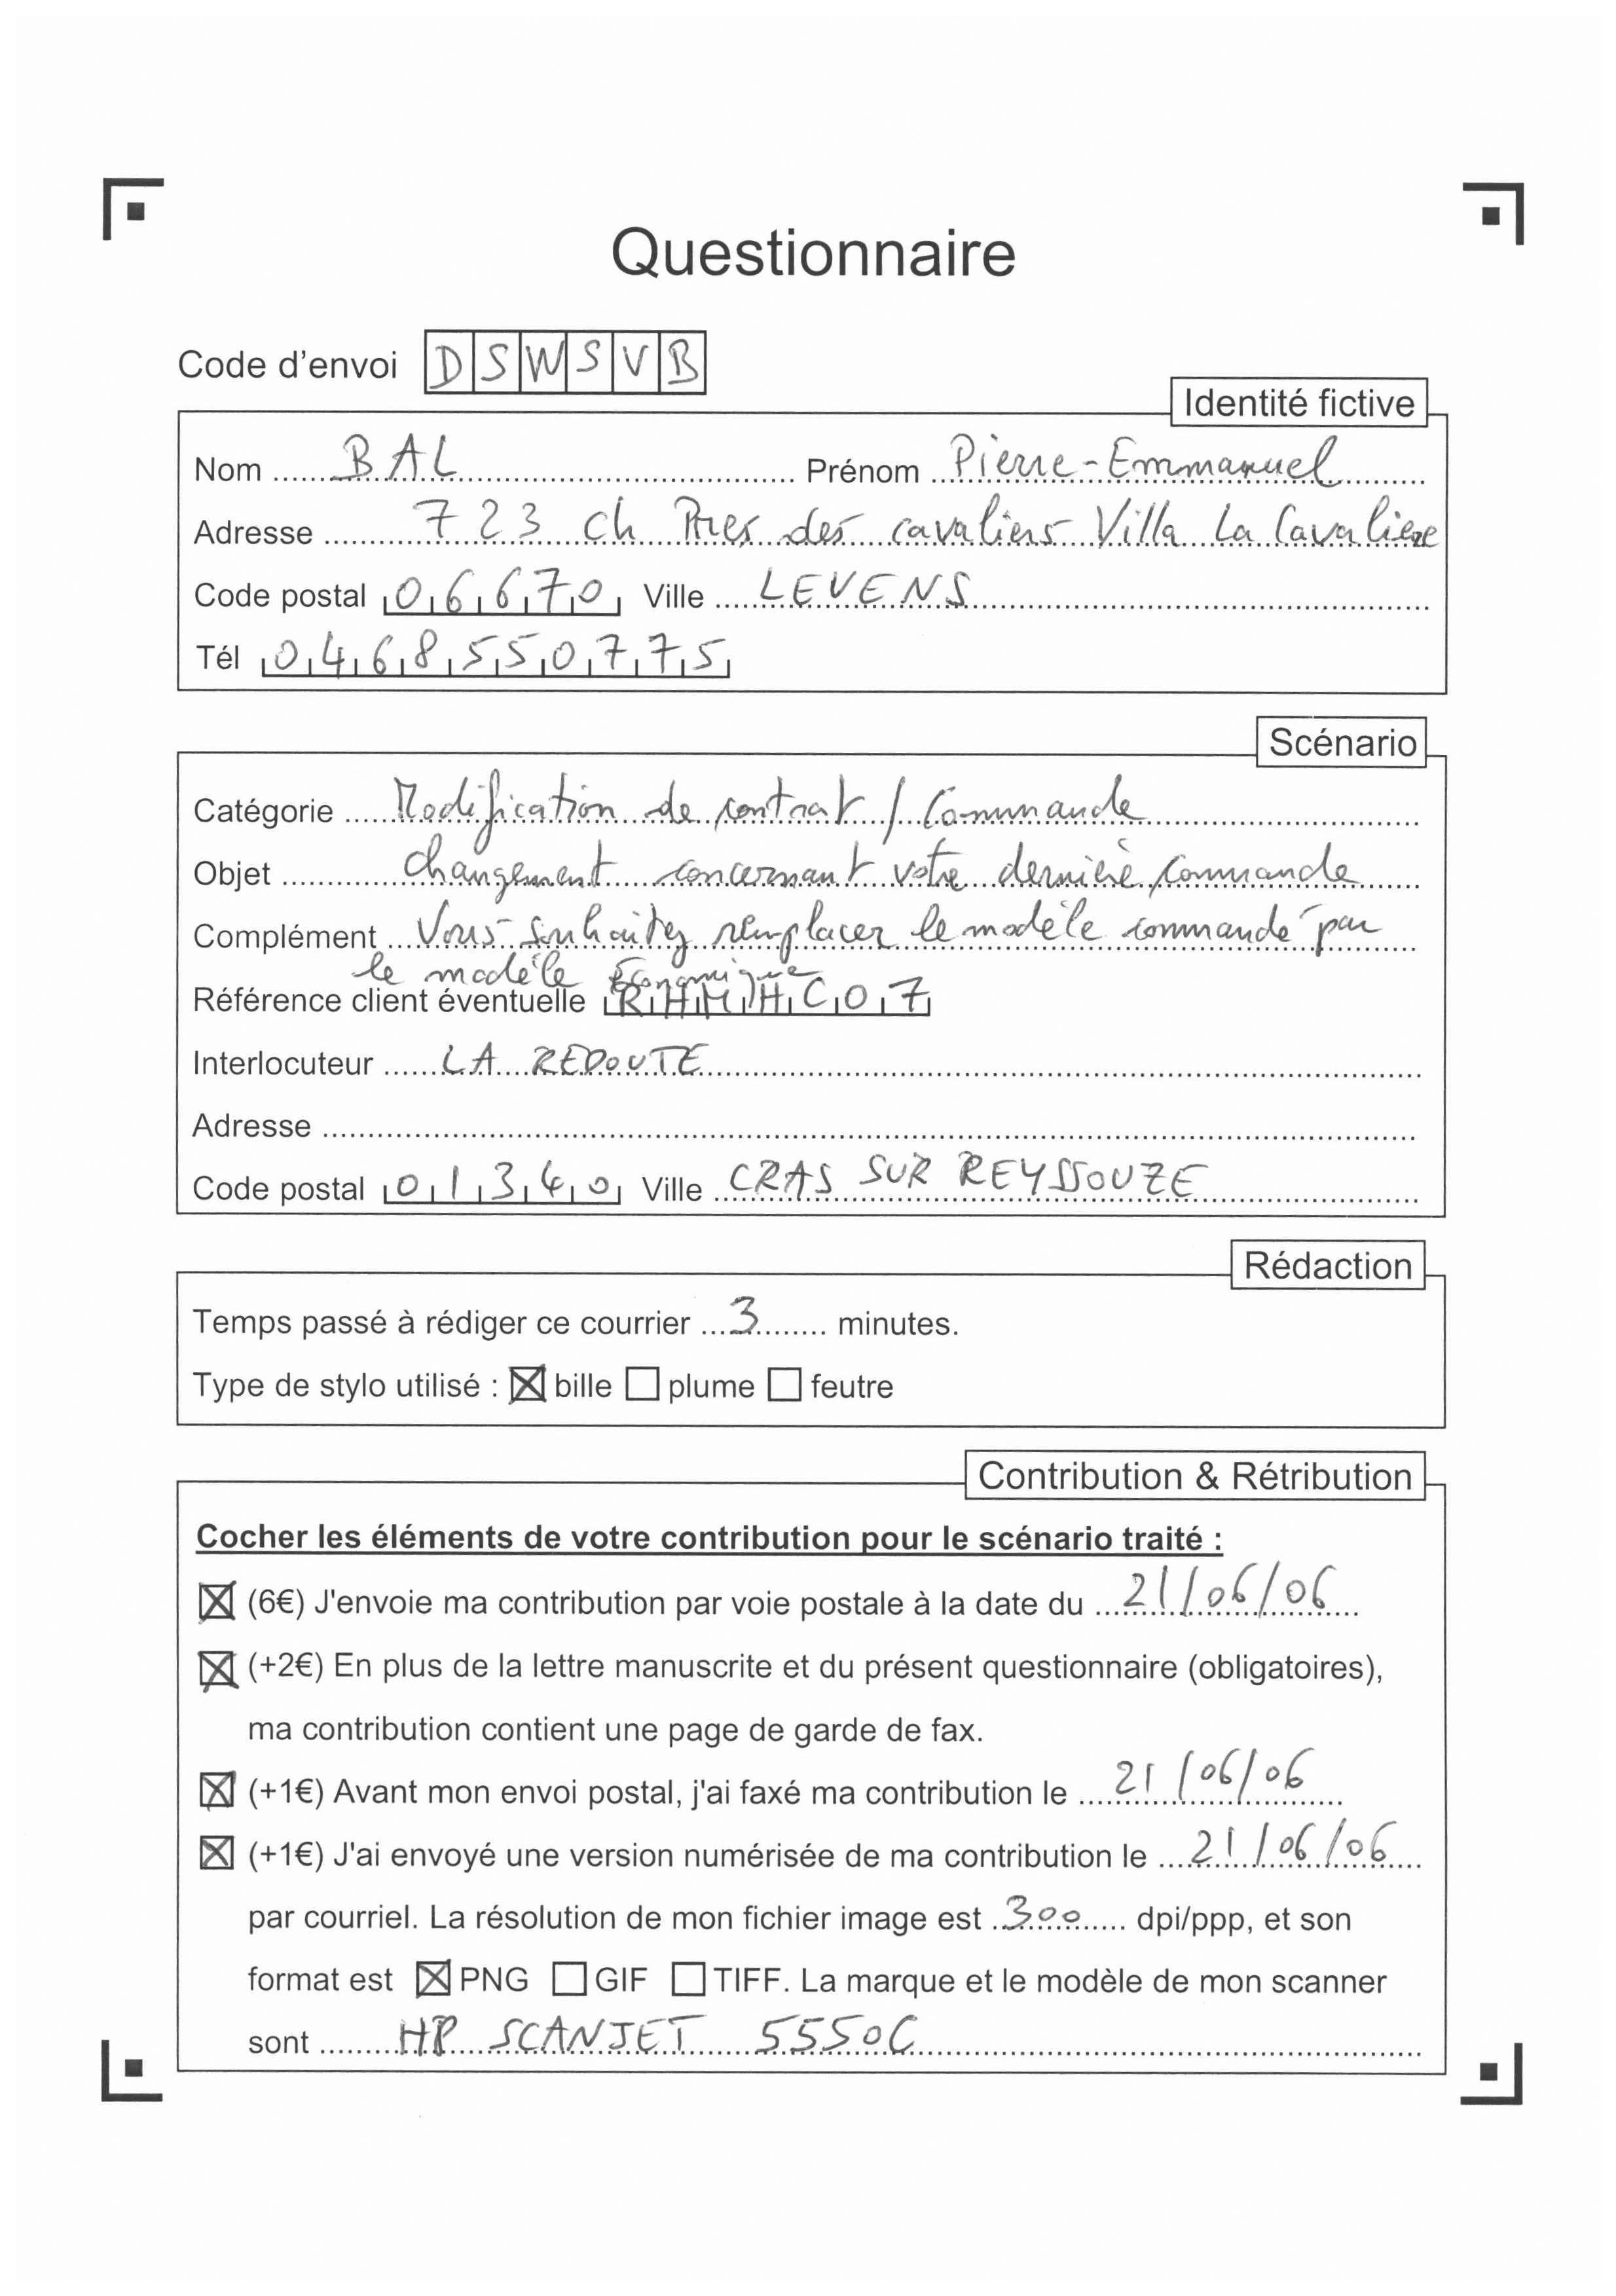 Questionnaire
Code d'envoi DSWSVB
Identité fictive
Nom BAL Prénom Pierre-Emmanuel
Adresse 723 ch Pres des cavaliers Villa La Cavaliere
Code postal 06670 Ville LEVENS
Tél 0468550775
Scénario
Catégorie Modification de contrat / Commande
Objet changement concernant votre dernière commande
Complément Vous souhaitez remplacer le modèle commandé par
le modèle économique
Référence client éventuelle RHMHC07
Interlocuteur LA REDOUTE
Adresse
Code postal 01340 Ville CRAS SUR REYSSOUZE
Rédaction
Temps passé à rédiger ce courrier 3 minutes.
Type de stylo utilisé : ☒ bille ☐ plume ☐ feutre
Contribution & Rétribution
Cocher les éléments de votre contribution pour le scénario traité :
☒ (6€) J'envoie ma contribution par voie postale à la date du 21/06/06
☒ (+2€) En plus de la lettre manuscrite et du présent questionnaire (obligatoires),
ma contribution contient une page de garde de fax.
☒ (+1€) Avant mon envoi postal, j'ai faxé ma contribution le 21/06/06
☒ (+1€) J'ai envoyé une version numérisée de ma contribution le 21/06/06
par courriel. La résolution de mon fichier image est 300 dpi/ppp, et son
format est ☒ PNG ☐ GIF ☐ TIFF. La marque et le modèle de mon scanner
sont HP SCANJET 5550C